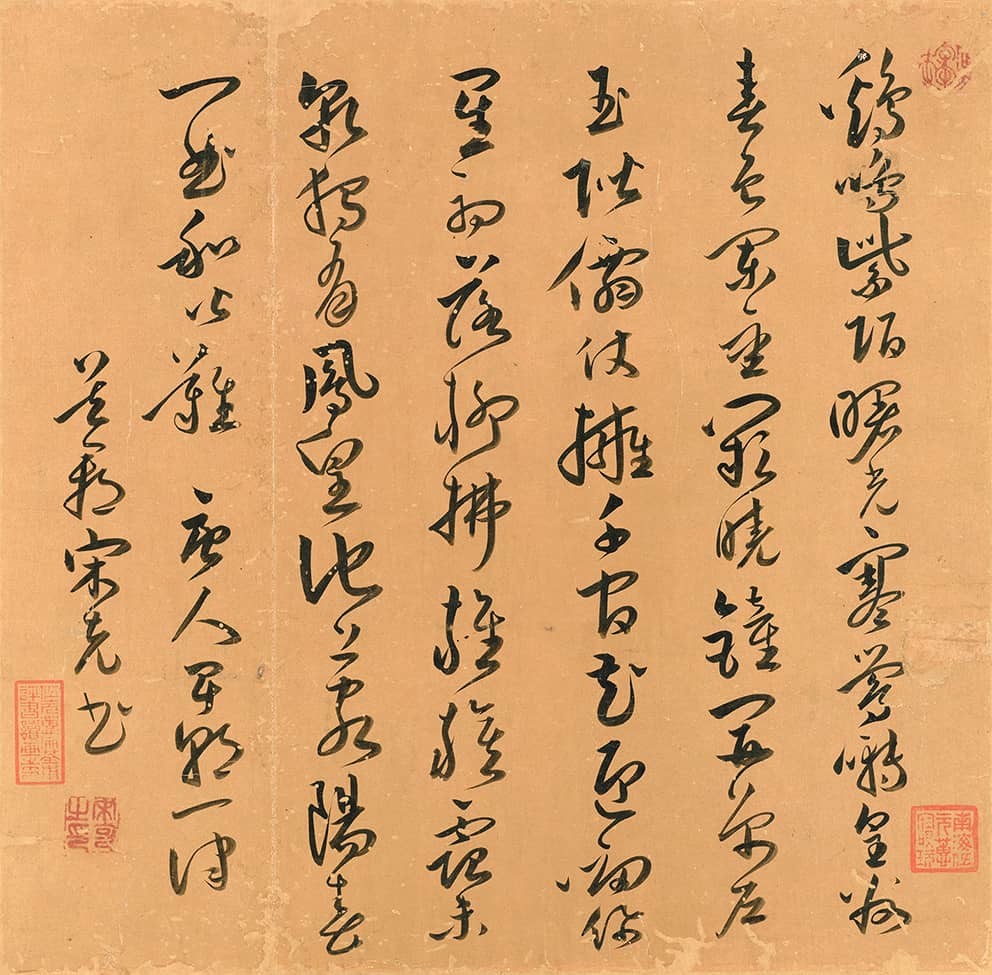 鷄鳴紫陌曙光寒鶯囀皇州
春色闌金闕曉鐘開萬戶
玉階僊仗擁千官花迎劍佩
星初落柳拂旌旗露未
乾獨有鳳皇池上客陽春
一曲和皆難 唐人早朝一律
吳郡宋克書
南海伍元蕙寶玩